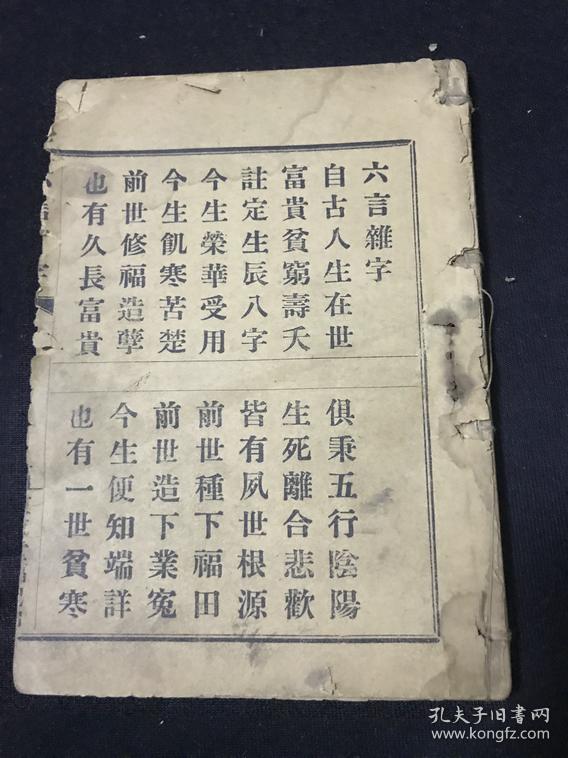 六言雜字
自古人生在世
俱秉五行陰陽
富貴貧窮壽夭
生死離合悲歡
註定生辰八字
皆有夙世根源
今生榮華受用
前世種下福田
今生飢寒苦楚
前世造下業冤
前世修福造孽
今生便知端詳
也有久長富貴
也有一世貧寒
孔夫子旧書网
www.kongfz.com